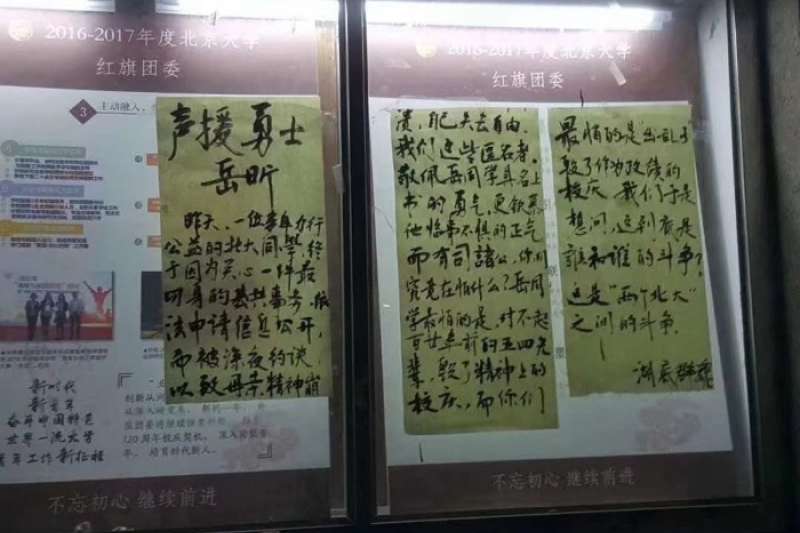 2016-2017年度北京大学
红旗团委
3
主动融入，
声援勇士
岳昕
昨天，一位多年力行
公益的北大同學，终
于因为关心一件最
切身的公共事务，依
法申请信息公开，
而被深夜约谈，
以致母亲精神崩
新时代
新青年
中国特色
世界一流大学
青年工作新征程
120周年校庆契机，深入
年，培育时代新人。
不忘初心 继续前进
2016-2017年度北京大学
红旗团委
溃，自己失去自由。
我们这些匿名者，
敬佩岳同学具名上
书的勇气，更钦羡
他临事不惧的正气
而有司諸公，你们
究竟在怕什么？岳同
学最怕的是，对不起
百廿年前的五四先
辈，毁了精神上的
校庆，而你们
最怕的是出乱子
毁了作为政绩的
校庆。我们于是
想问，这到底是
誰和誰的斗争？
这是“两个北大”
之间的斗争。
湖底
不忘初心 继续前进